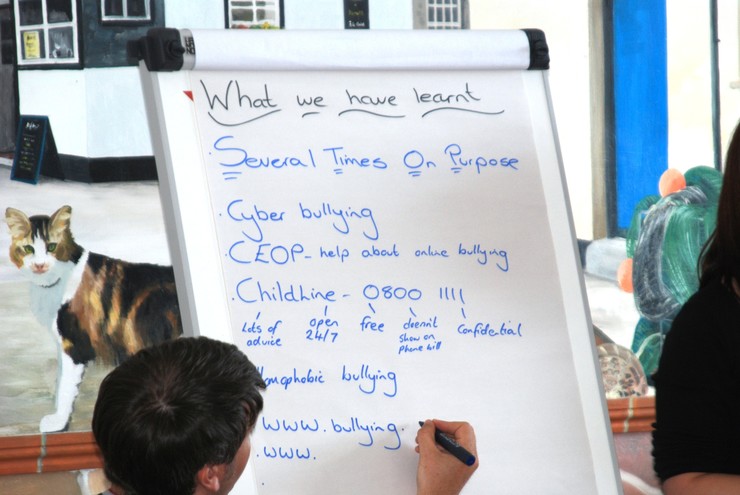 What we have learnt
· Several Times On Purpose
· Cyber bullying
· CEOP - help about online bullying
· Childline - 0800 1111
Lots of advice
open 24/7
free
doesn't show on phone bill
Confidential
omophobic bullying
www.bullying.
· www.
·